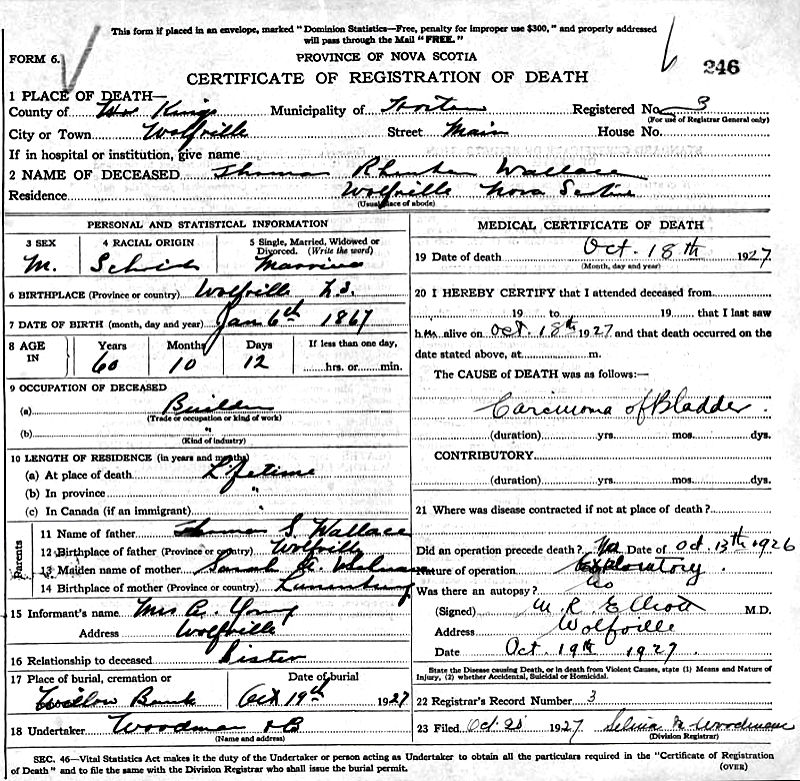 This form if placed in an envelope, marked "Dominion Statistics—Free, penalty for improper use $300," and properly addressed
will pass through the Mail "FREE."
FORM 6.
PROVINCE OF NOVA SCOTIA
246
CERTIFICATE OF REGISTRATION OF DEATH
1 PLACE OF DEATH—
County of Kings Municipality of Horton Registered No. 3
(For use of Registrar General only)
City or Town Wolfville Street Main House No.
If in hospital or institution, give name
2 NAME OF DECEASED Thomas Wallace
Residence Wolfville Nova Scotia
(Usual place of abode)
PERSONAL AND STATISTICAL INFORMATION
3 SEX 4 RACIAL ORIGIN 5 Single, Married, Widowed or
Divorced. (Write the word)
M. Married
6 BIRTHPLACE (Province or country) Wolfville N.S.
7 DATE OF BIRTH (month, day and year) Jan 6th 1867
8 AGE IN Years Months Days If less than one day,
60 10 12 hrs. or min.
9 OCCUPATION OF DECEASED
(a) Builder
(Trade or occupation or kind of work)
(b) "
(Kind of industry)
10 LENGTH OF RESIDENCE (in years and months)
(a) At place of death Lifetime
(b) In province "
(c) In Canada (if an immigrant)
Parents
11 Name of father Thomas S. Wallace
12 Birthplace of father (Province or country) Wolfville
13 Maiden name of mother Sarah A
14 Birthplace of mother (Province or country) Lunenburg
15 Informant's name Mrs Young
Address Wolfville
16 Relationship to deceased Sister
17 Place of burial, cremation or Date of burial
Willow Bank Oct 19th 1927
18 Undertaker Woodman & Co
(Name and address)
MEDICAL CERTIFICATE OF DEATH
19 Date of death Oct. 18th 1927
(Month, day and year)
20 I HEREBY CERTIFY that I attended deceased from
19 to 19 that I last saw
him alive on Oct. 18th 1927 and that death occurred on the
date stated above, at m.
The CAUSE of DEATH was as follows:—
Carcinoma of Bladder.
(duration) yrs. mos. dys.
CONTRIBUTORY
(duration) yrs. mos. dys.
21 Where was disease contracted if not at place of death?
Did an operation precede death? Date of Oct. 13th 1926
Nature of operation Exploratory.
Was there an autopsy? No
(Signed) M R Elliott M.D.
Address Wolfville
Date Oct 19th 1927
State the Disease causing Death, or in death from Violent Causes, state (1) Means and Nature of
Injury, (2) whether Accidental, Suicidal or Homicidal.
22 Registrar's Record Number 3
23 Filed Oct 1927 Woodman
(Division Registrar)
SEC. 46—Vital Statistics Act makes it the duty of the Undertaker or person acting as Undertaker to obtain all the particulars required in the "Certificate of Registration
of Death" and to file the same with the Division Registrar who shall issue the burial permit.
(OVER)